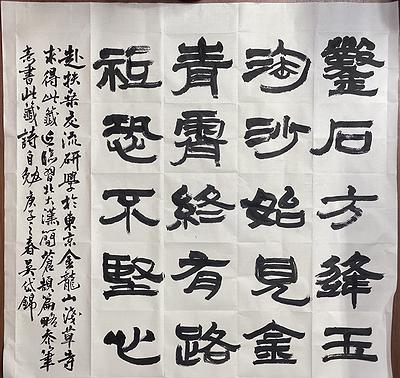 鑿石方逢玉
淘沙始見金
青霄終有路
祗恐不堅心
赴扶桑交流研學於東京金龍山淺草寺
求得此籤近臨習北大漢簡蒼頡篇略參筆
意書此籤詩自勉庚子之春吳岱錦